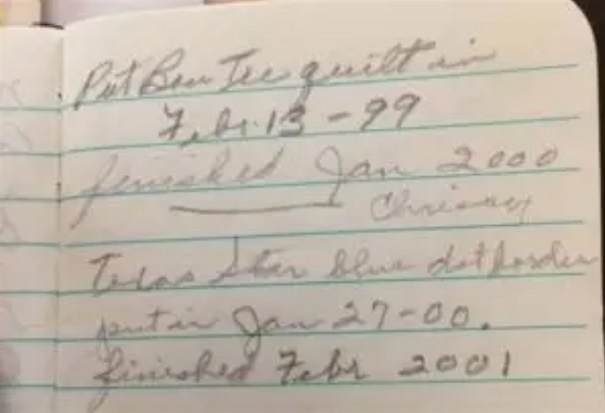 Put Bow Tie quilt in
Febr. 13 - 99
finished Jan 2000
Texas Star blue dot border
put in Jan 27-00.
finished Febr 2001